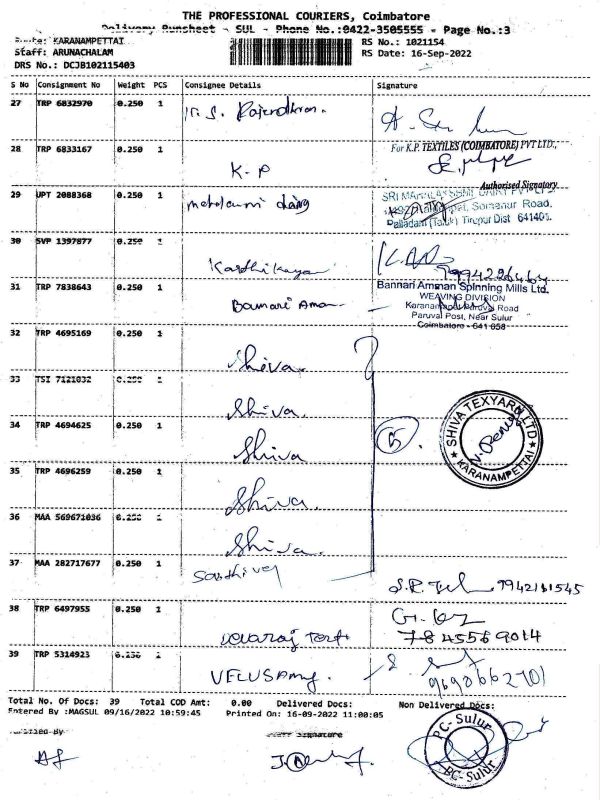 THE PROFESSIONAL COURIERS, Coimbatore
Delivery Runsheet - SUL - Phone No.:0422-3505555 - Page No.:3
Route: KARANAMPETTAI
RS No.: 1021154
Staff: ARUNACHALAM
RS Date: 16-Sep-2022
DRS No.: DCJB102115403
S No Consignment No Weight PCS Consignee Details Signature
27 TRP 6832970 0.250 1
28 TRP 6833167 0.250 1 K.P
For K.P. TEXTILES (COIMBATORE) PVT LTD.,
Authorised Signatory
29 UPT 2088368 0.250 1
Palladam (Taluk) Tirupur Dist 641401.
30 SVP 1397877 0.250 1 Karthikeyan
9994226464
31 TRP 7838643 0.250 1
Bannari Amman Spinning Mills Ltd.
WEAVING DIVISION
Karanampet Paruvai Road
Paruval Post, Near Sulur
Coimbatore - 641 658
32 TRP 4695169 0.250 1 Shiva.
33 TSI 7121032 0.250 1 Shiva.
34 TRP 4694625 0.250 1 Shiva
5
SHIVA TEXYARN LTD
KARANAMPETTAI
35 TRP 4696259 0.250 1 Shiva.
36 MAA 569671036 0.250 1 Shiva.
37 MAA 282717677 0.250 1 Santhivel
9942161545
38 TRP 6497955 0.250 1
7845569014
39 TRP 5314923 0.250 1 VELUSAMY.
9698662701
Total No. Of Docs: 39 Total COD Amt: 0.00 Delivered Docs: Non Delivered Docs:
Entered By :MAGSUL 09/16/2022 10:59:45 Printed On: 16-09-2022 11:00:05
Verified By
Staff Signature
PC-Sulur
PC-Sulur